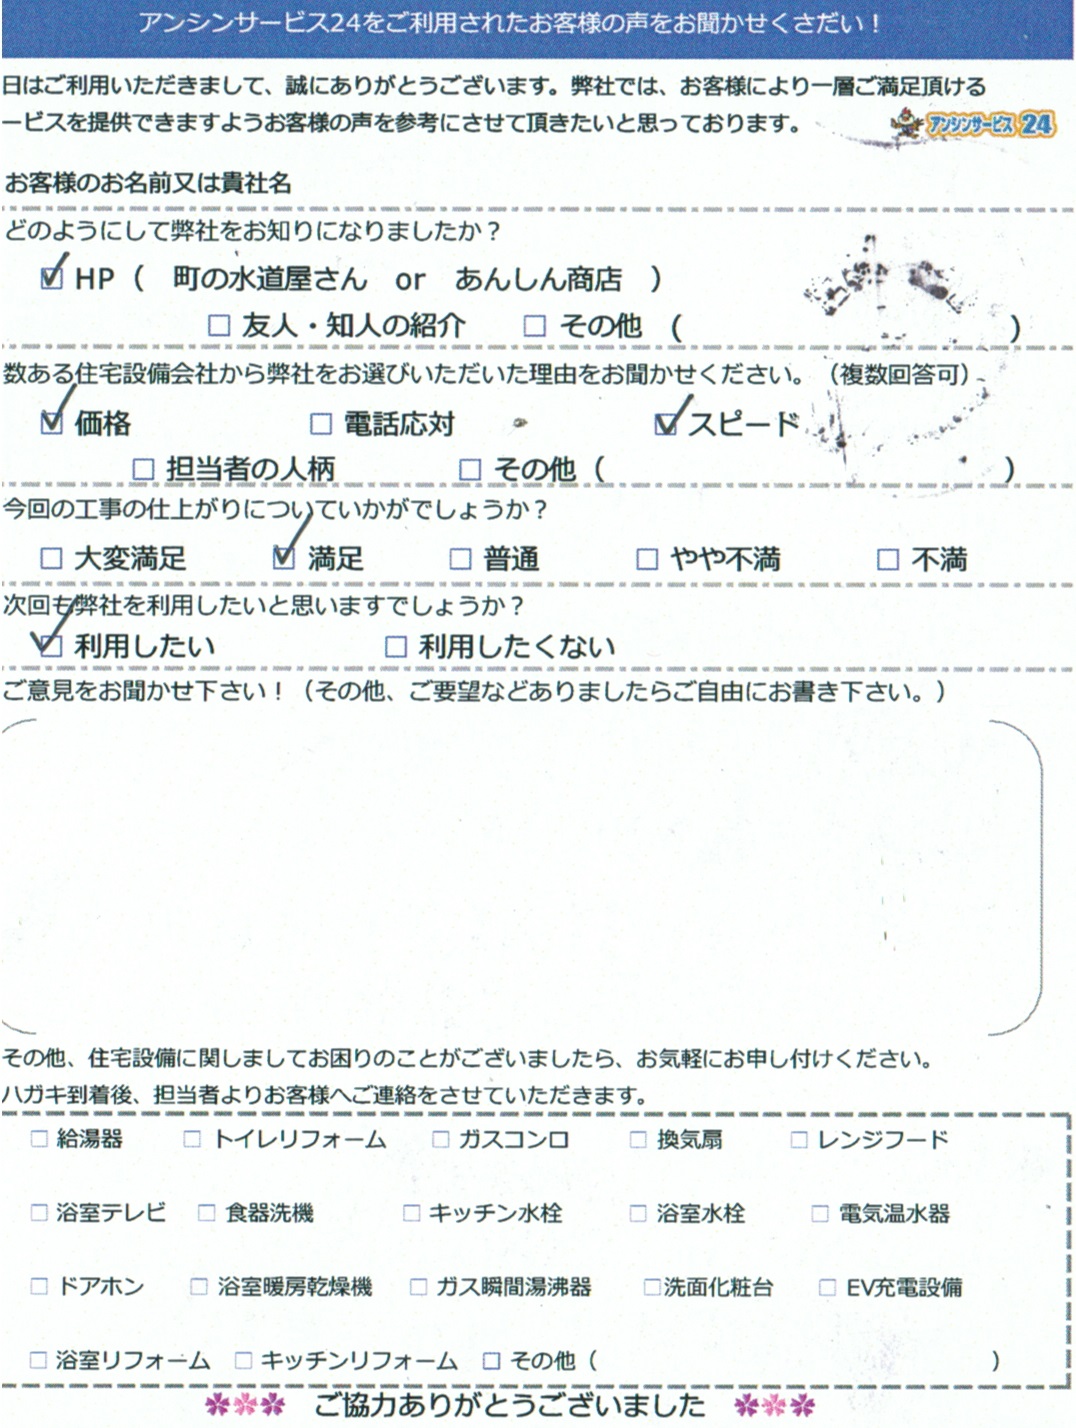 アンシンサービス24をご利用されたお客様の声をお聞かせくさだい！
日はご利用いただきまして、誠にありがとうございます。弊社では、お客様により一層ご満足頂ける
ービスを提供できますようお客様の声を参考にさせて頂きたいと思っております。
アンシンサービス24
お客様のお名前又は貴社名
どのようにして弊社をお知りになりましたか？
☑ HP（　町の水道屋さん　or　あんしん商店　）
□ 友人・知人の紹介　□ その他　（　）
数ある住宅設備会社から弊社をお選びいただいた理由をお聞かせください。（複数回答可）
☑ 価格　□ 電話応対　☑ スピード
□ 担当者の人柄　□ その他（　）
今回の工事の仕上がりについていかがでしょうか？
□ 大変満足　☑ 満足　□ 普通　□ やや不満　□ 不満
次回も弊社を利用したいと思いますでしょうか？
☑ 利用したい　□ 利用したくない
ご意見をお聞かせ下さい！（その他、ご要望などありましたらご自由にお書き下さい。）
その他、住宅設備に関しましてお困りのことがございましたら、お気軽にお申し付けください。
ハガキ到着後、担当者よりお客様へご連絡をさせていただきます。
□ 給湯器　□ トイレリフォーム　□ ガスコンロ　□ 換気扇　□ レンジフード
□ 浴室テレビ　□ 食器洗機　□ キッチン水栓　□ 浴室水栓　□ 電気温水器
□ ドアホン　□ 浴室暖房乾燥機　□ ガス瞬間湯沸器　□洗面化粧台　□ EV充電設備
□ 浴室リフォーム　□ キッチンリフォーム　□ その他（　）
ご協力ありがとうございました